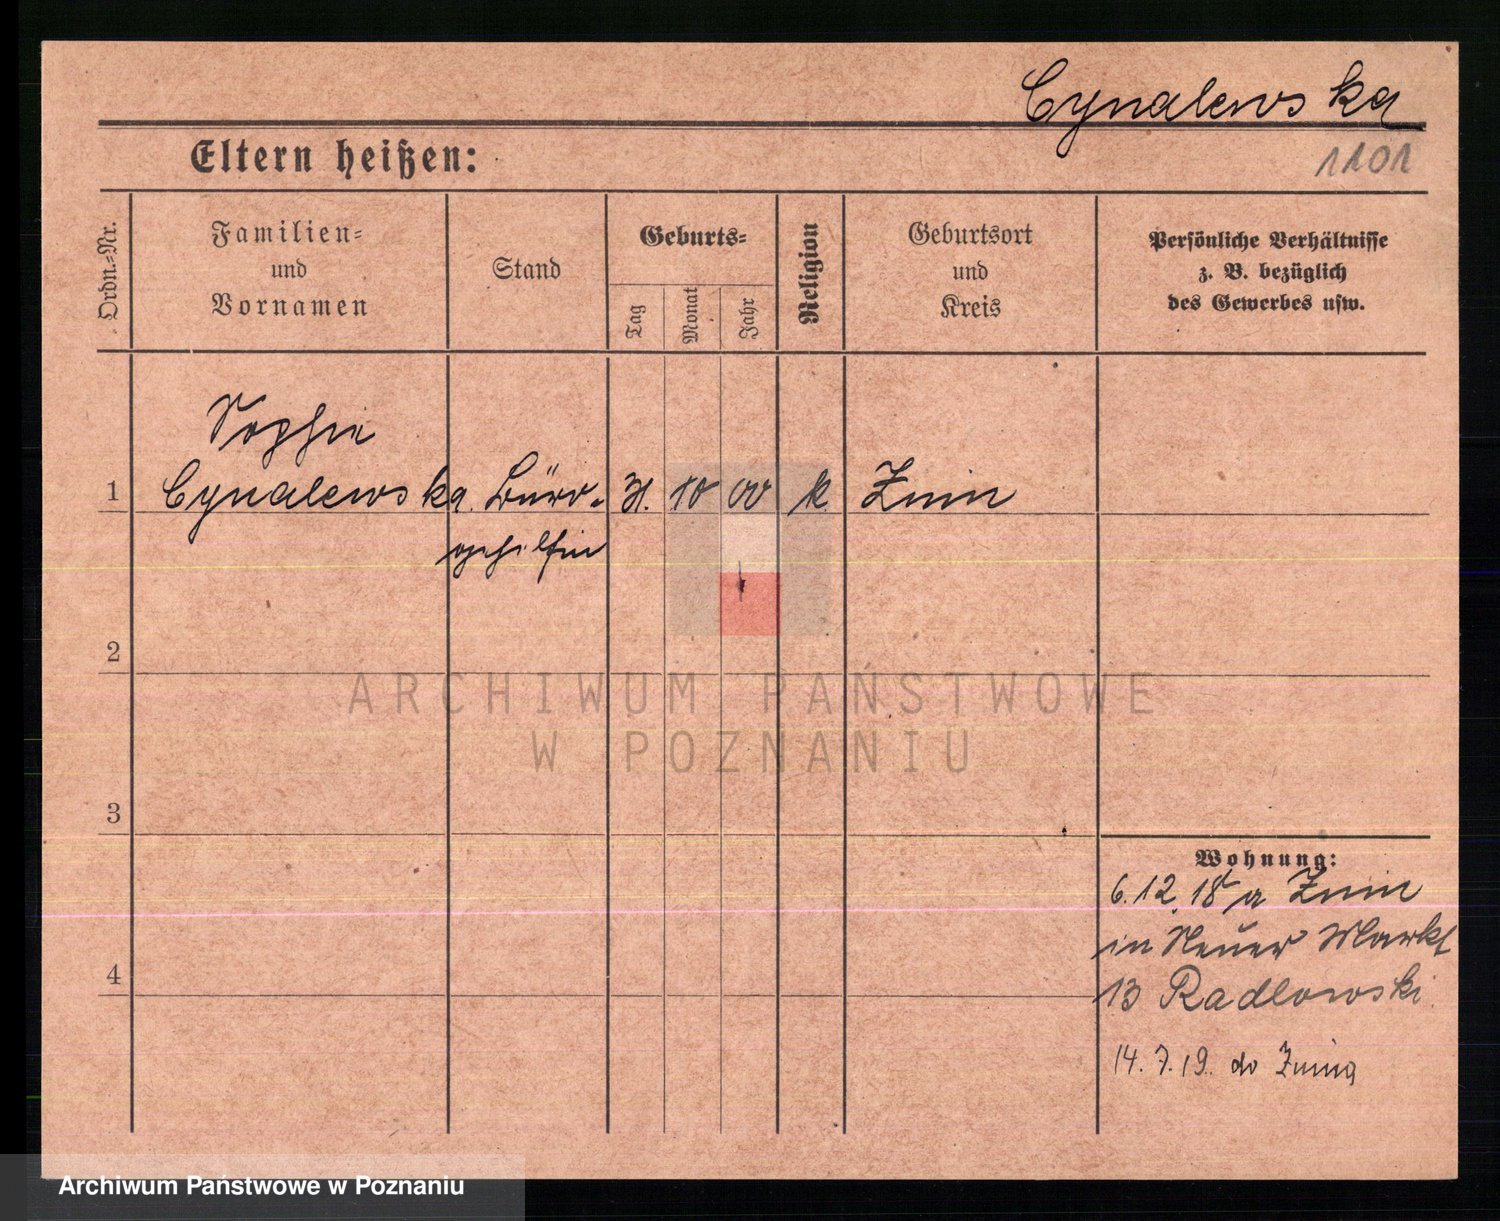 Cynalewska
Eltern heißen:
1101
Ordn.-Nr.
Familien-
und
Vornamen
Stand
Geburts-
Tag
Monat
Jahr
Religion
Geburtsort
und
Kreis
Persönliche Verhältnisse
z. B. bezüglich
des Gewerbes usw.
Sophie
1 Cynalewska Büro- 31. 10 00 k Znin
gehilfin
2
ARCHIWUM PAŃSTWOWE
W POZNANIU
3
Wohnung:
6.12.18 a Znin
in Neuer Markt
4
13 Radlowski
14.7.19. do Znina
Archiwum Państwowe w Poznaniu